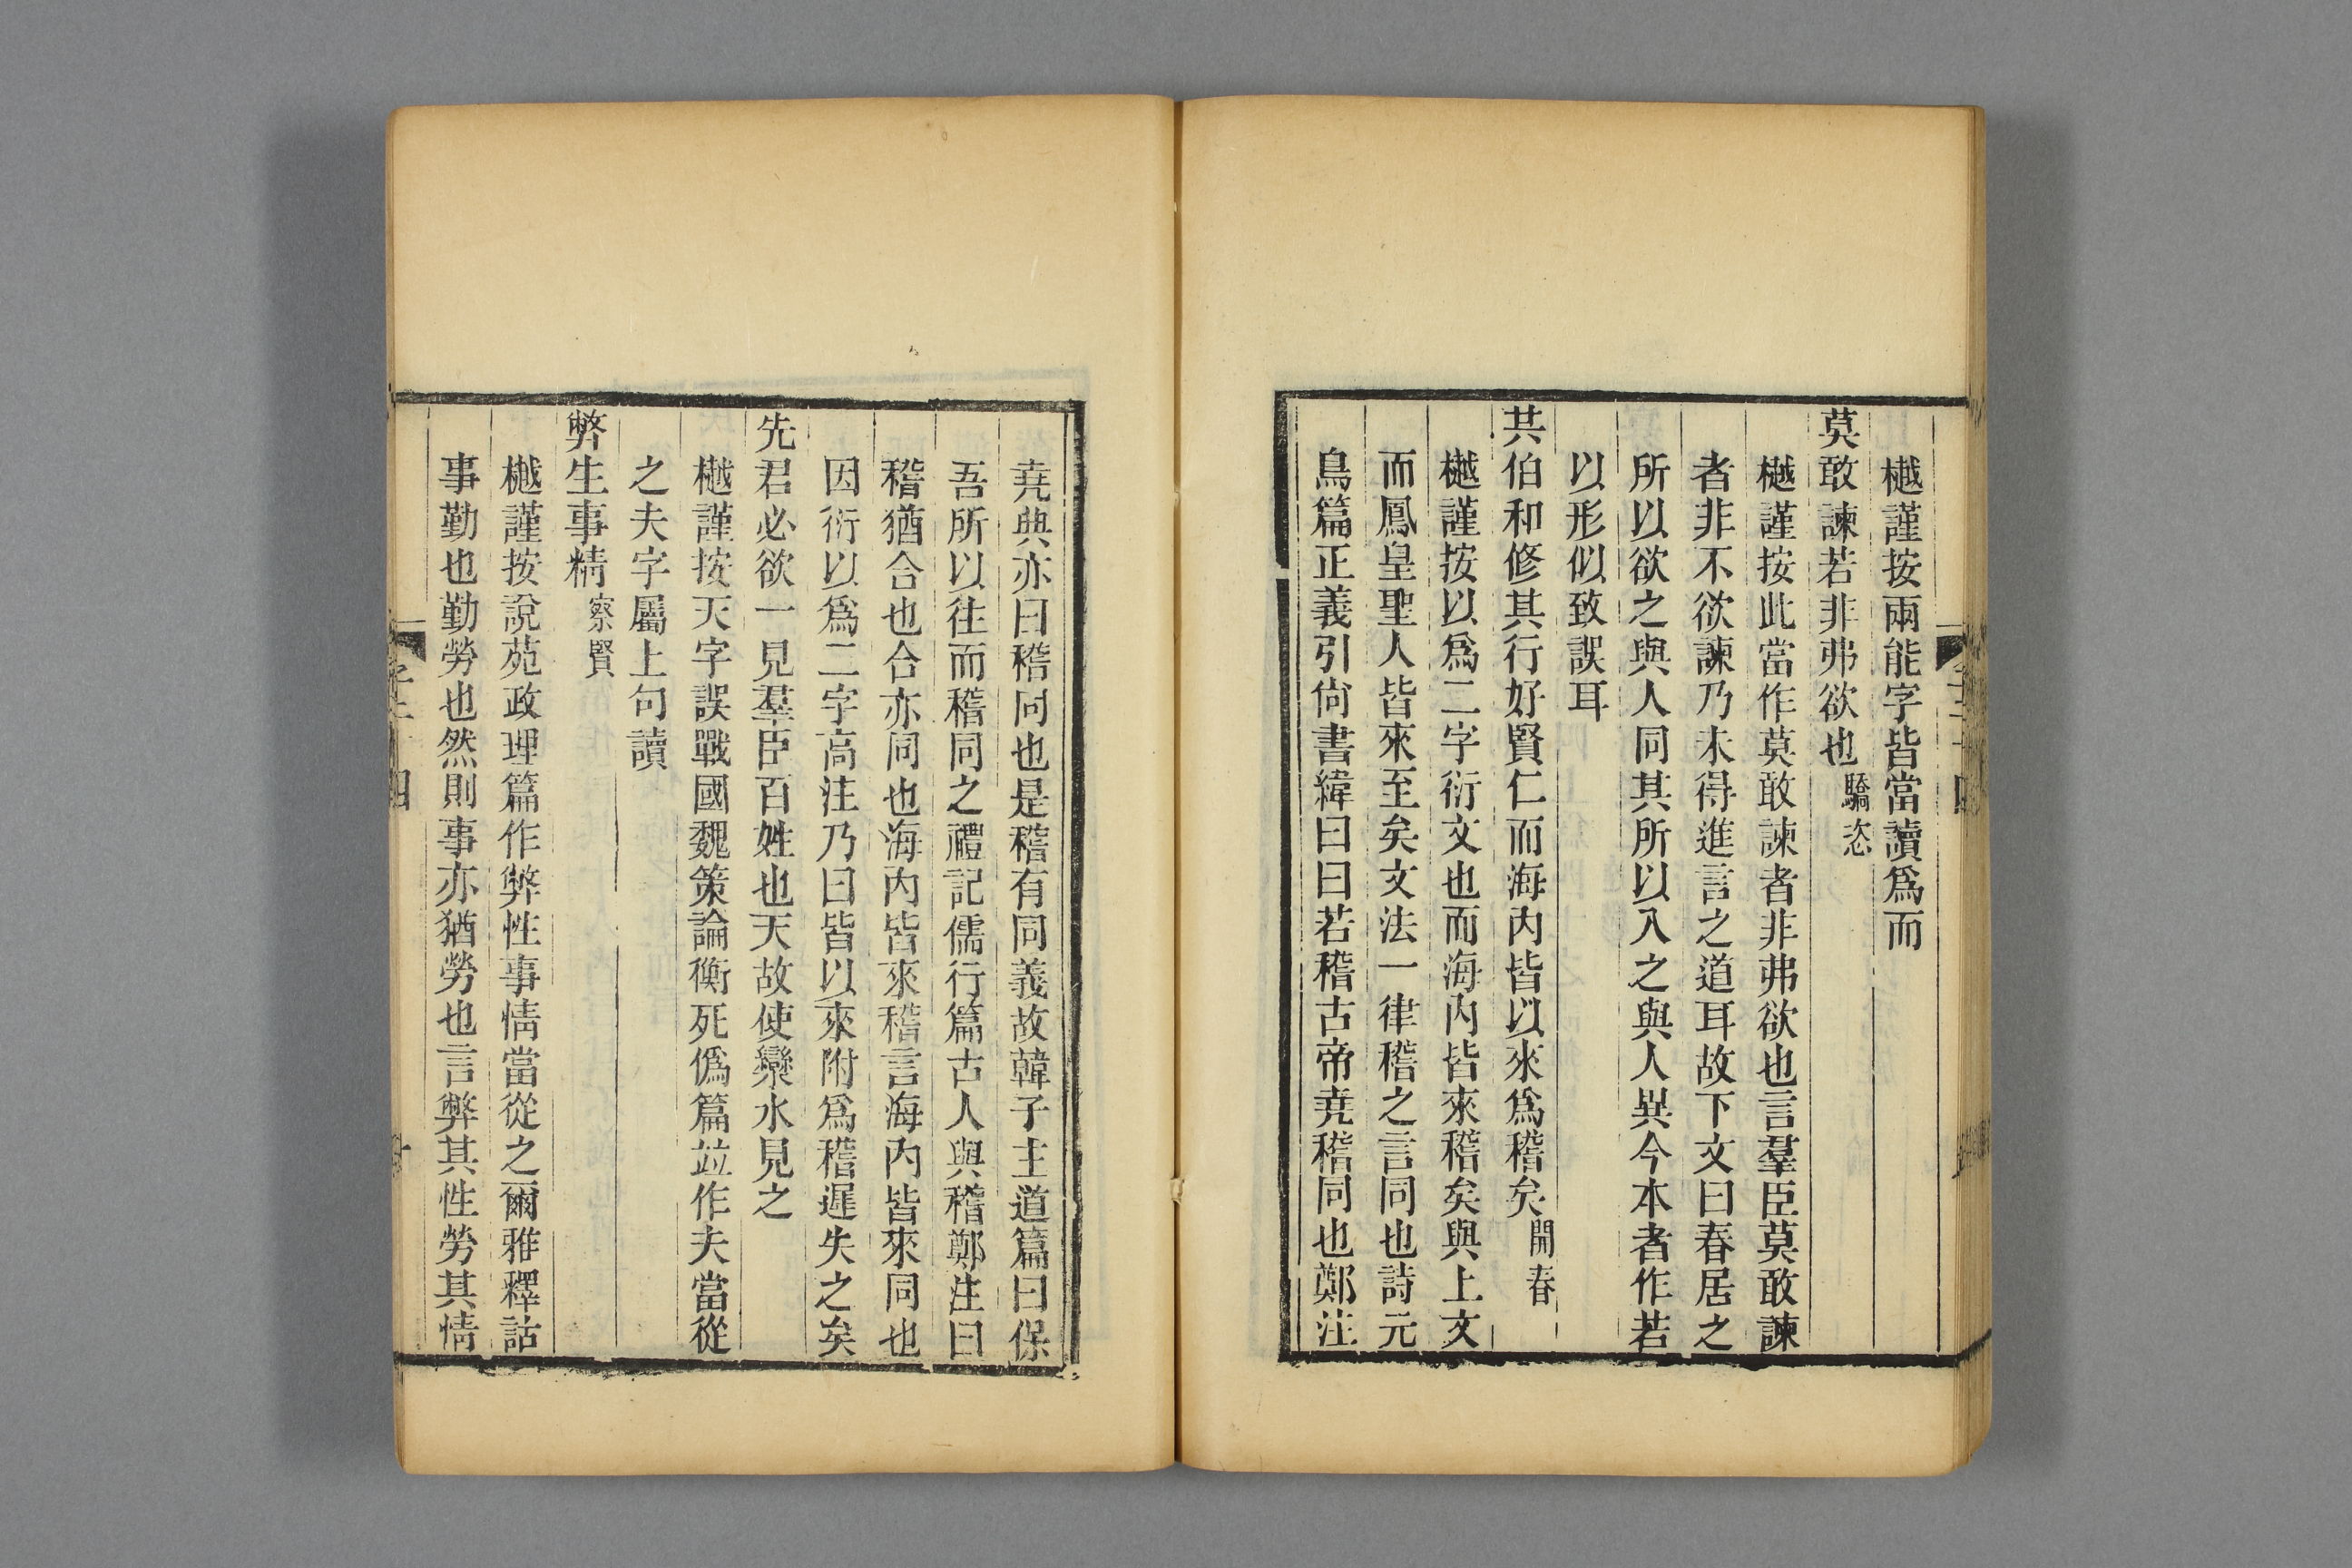 樾謹按兩能字皆當讀爲而
莫敢諫若非弗欲也驕恣
樾謹按此當作莫敢諫者非弗欲也言羣臣莫敢諫
者非不欲諫乃未得進言之道耳故下文曰春居之
所以欲之與人同其所以入之與人異今本者作若
以形似致誤耳
共伯和修其行好賢仁而海內皆以來爲稽矣開春
樾謹按以爲二字衍文也而海內皆來稽矣與上文
而鳳皇聖人皆來至矣文法一律稽之言同也詩元
鳥篇正義引尙書緯曰曰若稽古帝堯稽同也鄭注
堯典亦曰稽同也是稽有同義故韓子主道篇曰保
吾所以往而稽同之禮記儒行篇古人與稽鄭注曰
稽猶合也合亦同也海內皆來稽言海內皆來同也
因衍以爲二字高注乃曰皆以來附爲稽遲失之矣
先君必欲一見羣臣百姓也天故使欒水見之
樾謹按天字誤戰國魏策論衡死僞篇竝作夫當從
之夫字屬上句讀
弊生事精察賢
樾謹按說苑政理篇作弊性事情當從之爾雅釋詁
事勤也勤勞也然則事亦猶勞也言弊其性勞其情